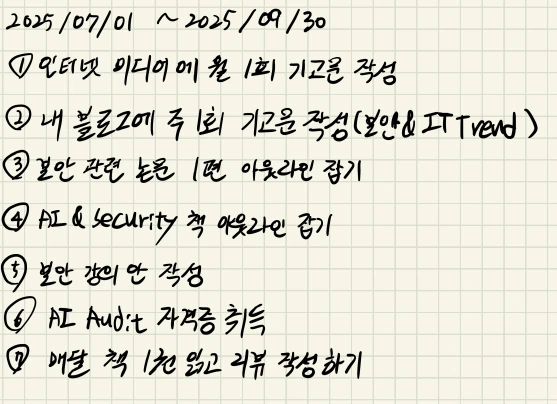 2025/07/01 ~ 2025/09/30
① 인터넷 미디어에 월 1회 기고문 작성
② 내 블로그에 주 1회 기고문 작성(보안& IT Trend)
③ 보안 관련 논문 1편 아웃라인 잡기
④ AI & Security 책 아웃라인 잡기
⑤ 보안 강의안 작성
⑥ AI Audit 자격증 취득
⑦ 매달 책 1권 읽고 리뷰 작성하기